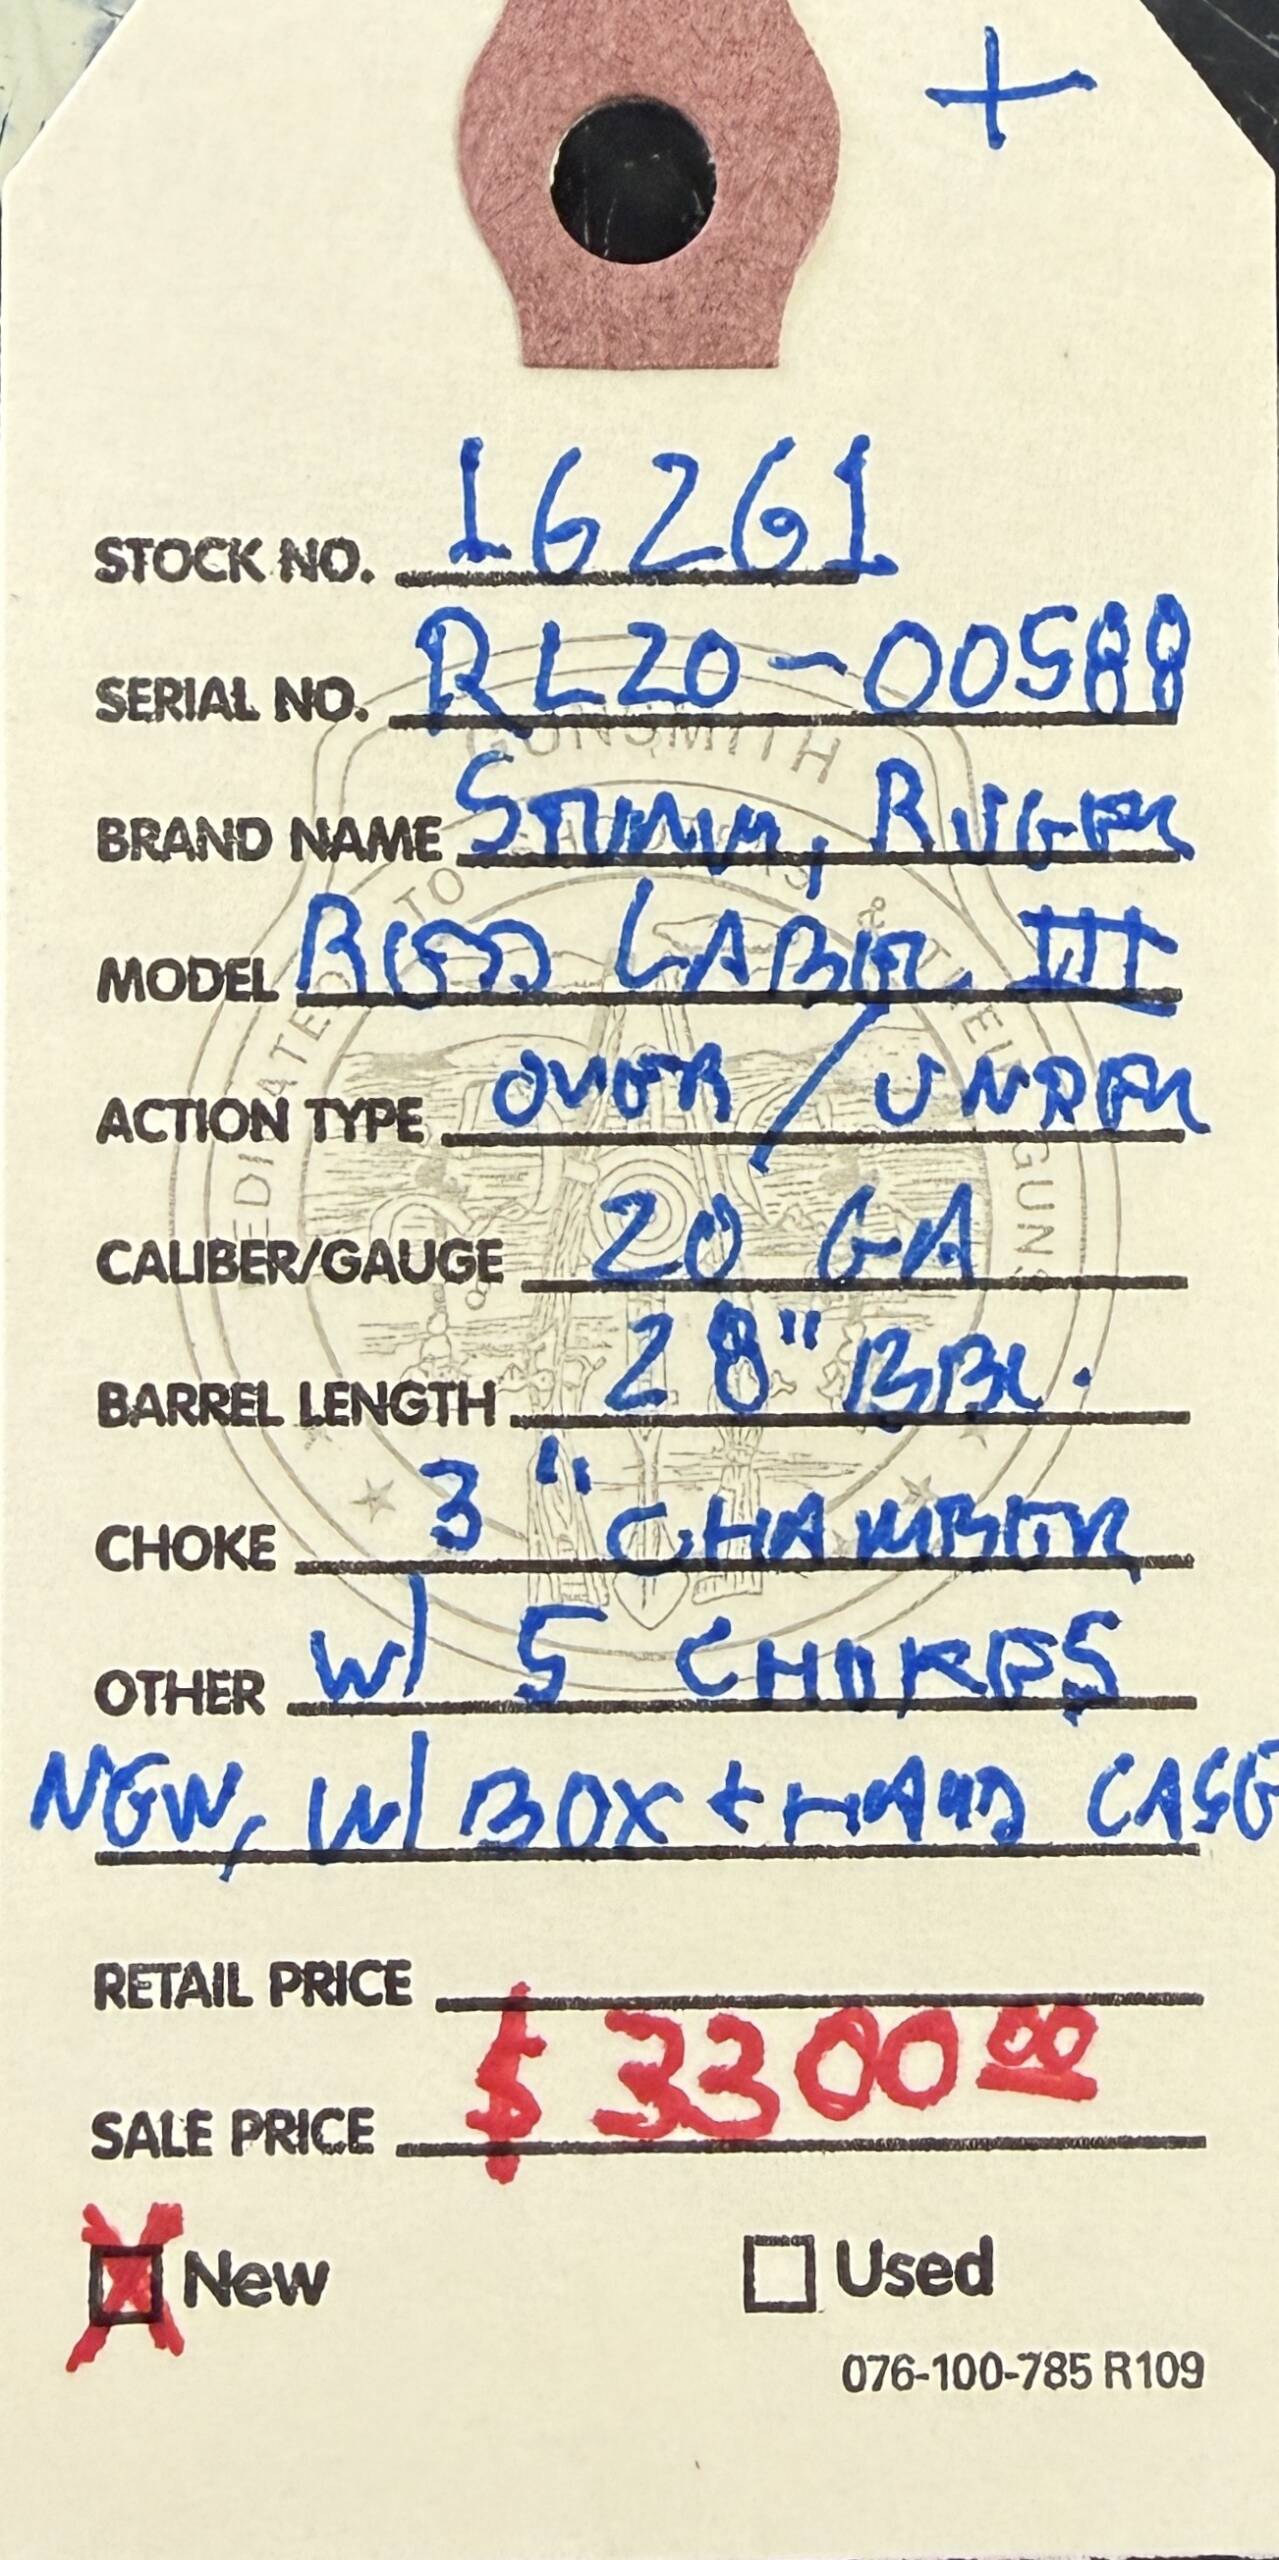 +
STOCK NO. 16261
SERIAL NO. RL20-00588
GUNSMITH
BRAND NAME STURM, RUGER
MODEL RED LABEL III
ACTION TYPE OVER / UNDER
CALIBER/GAUGE 20 GA
BARREL LENGTH 28" BBL.
CHOKE 3" CHAMBER
OTHER W/ 5 CHOKES
NEW, W/ BOX + HARD CASE
RETAIL PRICE
SALE PRICE $3300 00
X New
Used
076-100-785 R109